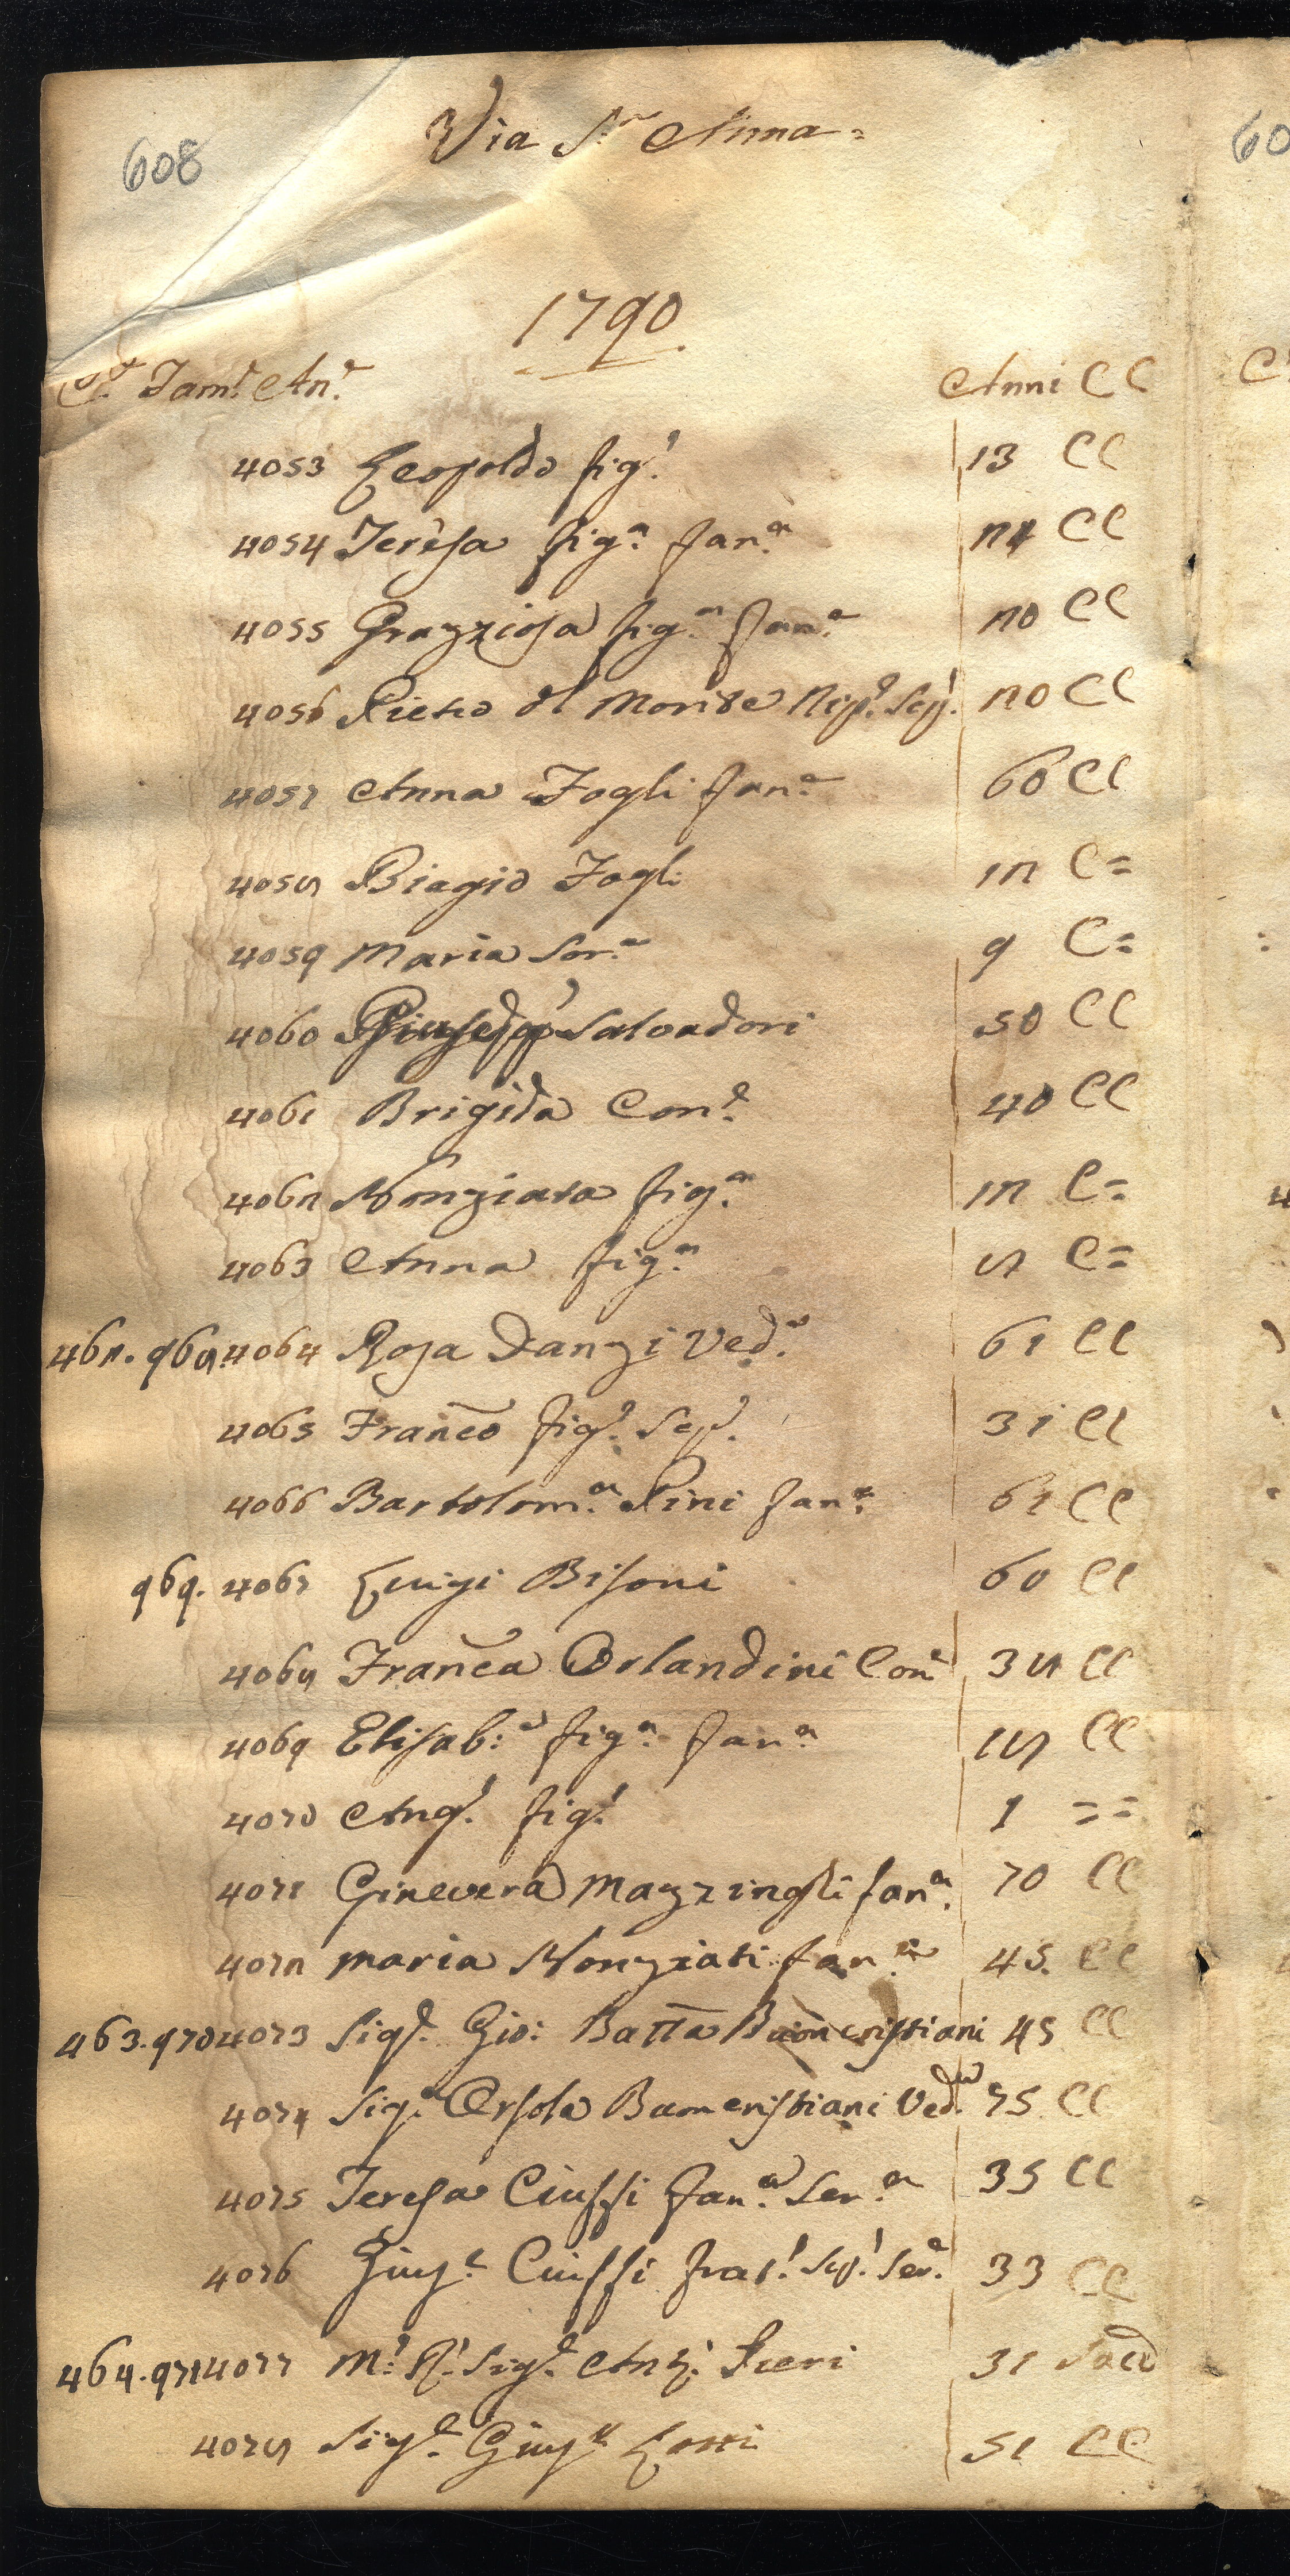 608
Via S.ª Anna =
60
1790
C.ª Fam.ª An.ª Anni CC
4053 Leopoldo fig.º 13 CC
4054 Teresa fig.ª fan.ª 24 CC
4055 Grazziosa fig.ª fan.ª 20 CC
4056 Pietro del Monte Nip.e Scp.º 20 CC
4057 Anna Fogli fan.ª 60 CC
4058 Biagio Fogli 12 C=
4059 Maria Sor.ª 9 C=
4060 Giusepp.e Salvadori 50 CC
4061 Brigida Con.e 40 CC
4062 Nonziata fig.ª 12 C=
4063 Anna fig.ª 8 C=
462. 968. 4064 Rosa Danzi Ved.ª 61 CC
4065 Franco fig.º Scp.º 31 CC
4066 Bartolom.ª Pini fan.ª 61 CC
969. 4067 Luigi Bisoni 60 CC
4068 Franca Orlandini Con.e 38 CC
4069 Elisab:ª fig.ª fan.ª 18 CC
4070 Ang.º fig.º 1 ==
4071 Ginevera Mazzinghi fan.ª 70 CC
4072 Maria Nonziati fan.ª 45. CC
463. 970 4073 Sig.e Gio: Batta 45 CC
4074 Sig.ª Orsola Ved.ª 75 CC
4075 Teresa Ciuffi fan.ª Ser.ª 35 CC
4076 Gius.e Ciuffi frat.º Scp.º Ser.e 33 CC
464. 971 4077 M.º R.º Sig.e Ant.º Pieri 31 Sacd
4078 Sig.e Gius.e Lotti 51 CC